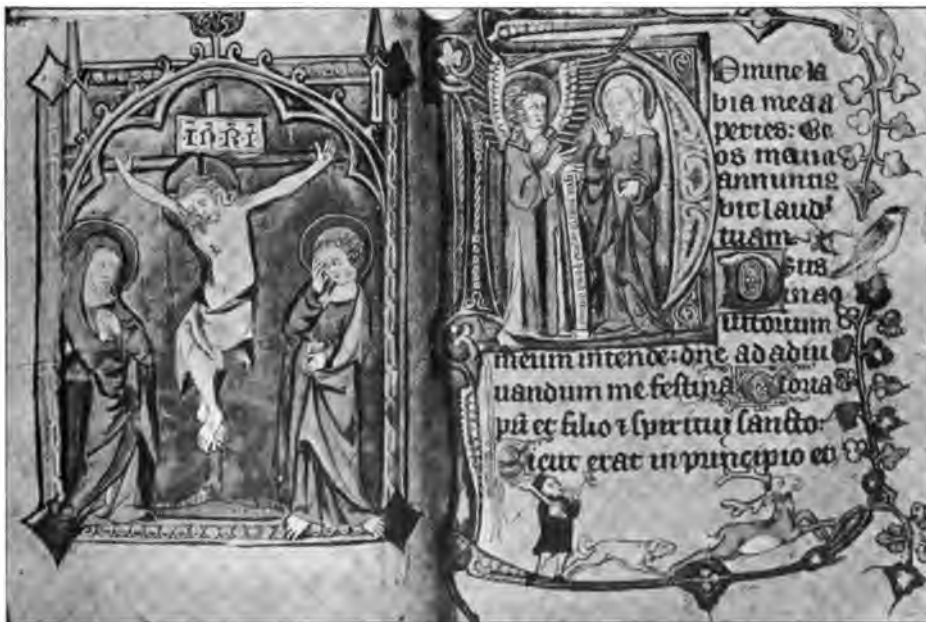 INRI
Domine la
bia mea a
peries: Et
os meum
annuntia
bit laudē
tuam
Deus
in ad
iutorium
meum intende: dne ad adiu
uandum me festina Gloria
pri et filio ⁊ spiritui sancto:
Sicut erat in principio et